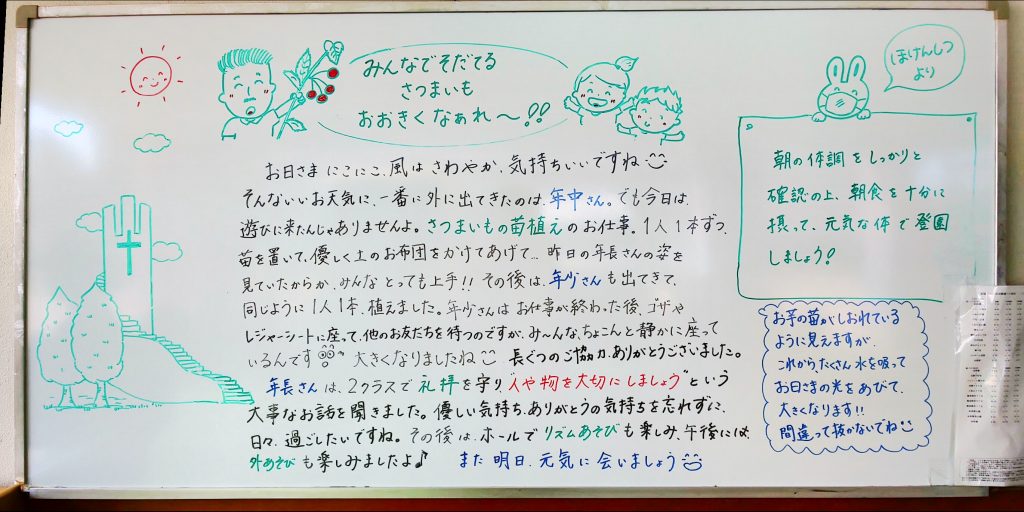 みんなでそだてる
さつまいも
おおきくなぁれ〜!!
お日さまにこにこ、風はさわやか、気持ちいいですね
そんないいお天気に、一番に外に出てきたのは、年中さん。でも今日は、
遊びに来たんじゃありませんよ。さつまいもの苗植えのお仕事。1人1本ずつ、
苗を置いて、優しく土のお布団をかけてあげて… 昨日の年長さんの姿を
見ていたからか、みんなとっても上手!! その後は、年少さんも出てきて、
同じように1人1本、植えました。年少さんはお仕事が終わった後、ゴザや
レジャーシートに座って、他のお友だちを待つのですが、み〜んな、ちょこんと静かに座って
いるんです 大きくなりましたね 長ぐつのご協力、ありがとうございました。
年長さんは、2クラスで礼拝を守り、人や物を大切にしましょう”という
大事なお話を聞きました。優しい気持ち、ありがとうの気持ちを忘れずに、
日々、過ごしたいですね。その後は、ホールでリズムあそびも楽しみ、午後には、
外あそびも楽しみましたよ♪ また明日、元気に会いましょう
ほけんしつ
より
朝の体調をしっかりと
確認の上、朝食を十分に
摂って、元気な体で登園
しましょう!
お芋の苗がしおれている
ように見えますが、
これからたくさん水を吸って
お日さまの光をあびて、
大きくなります!!
間違って抜かないでね